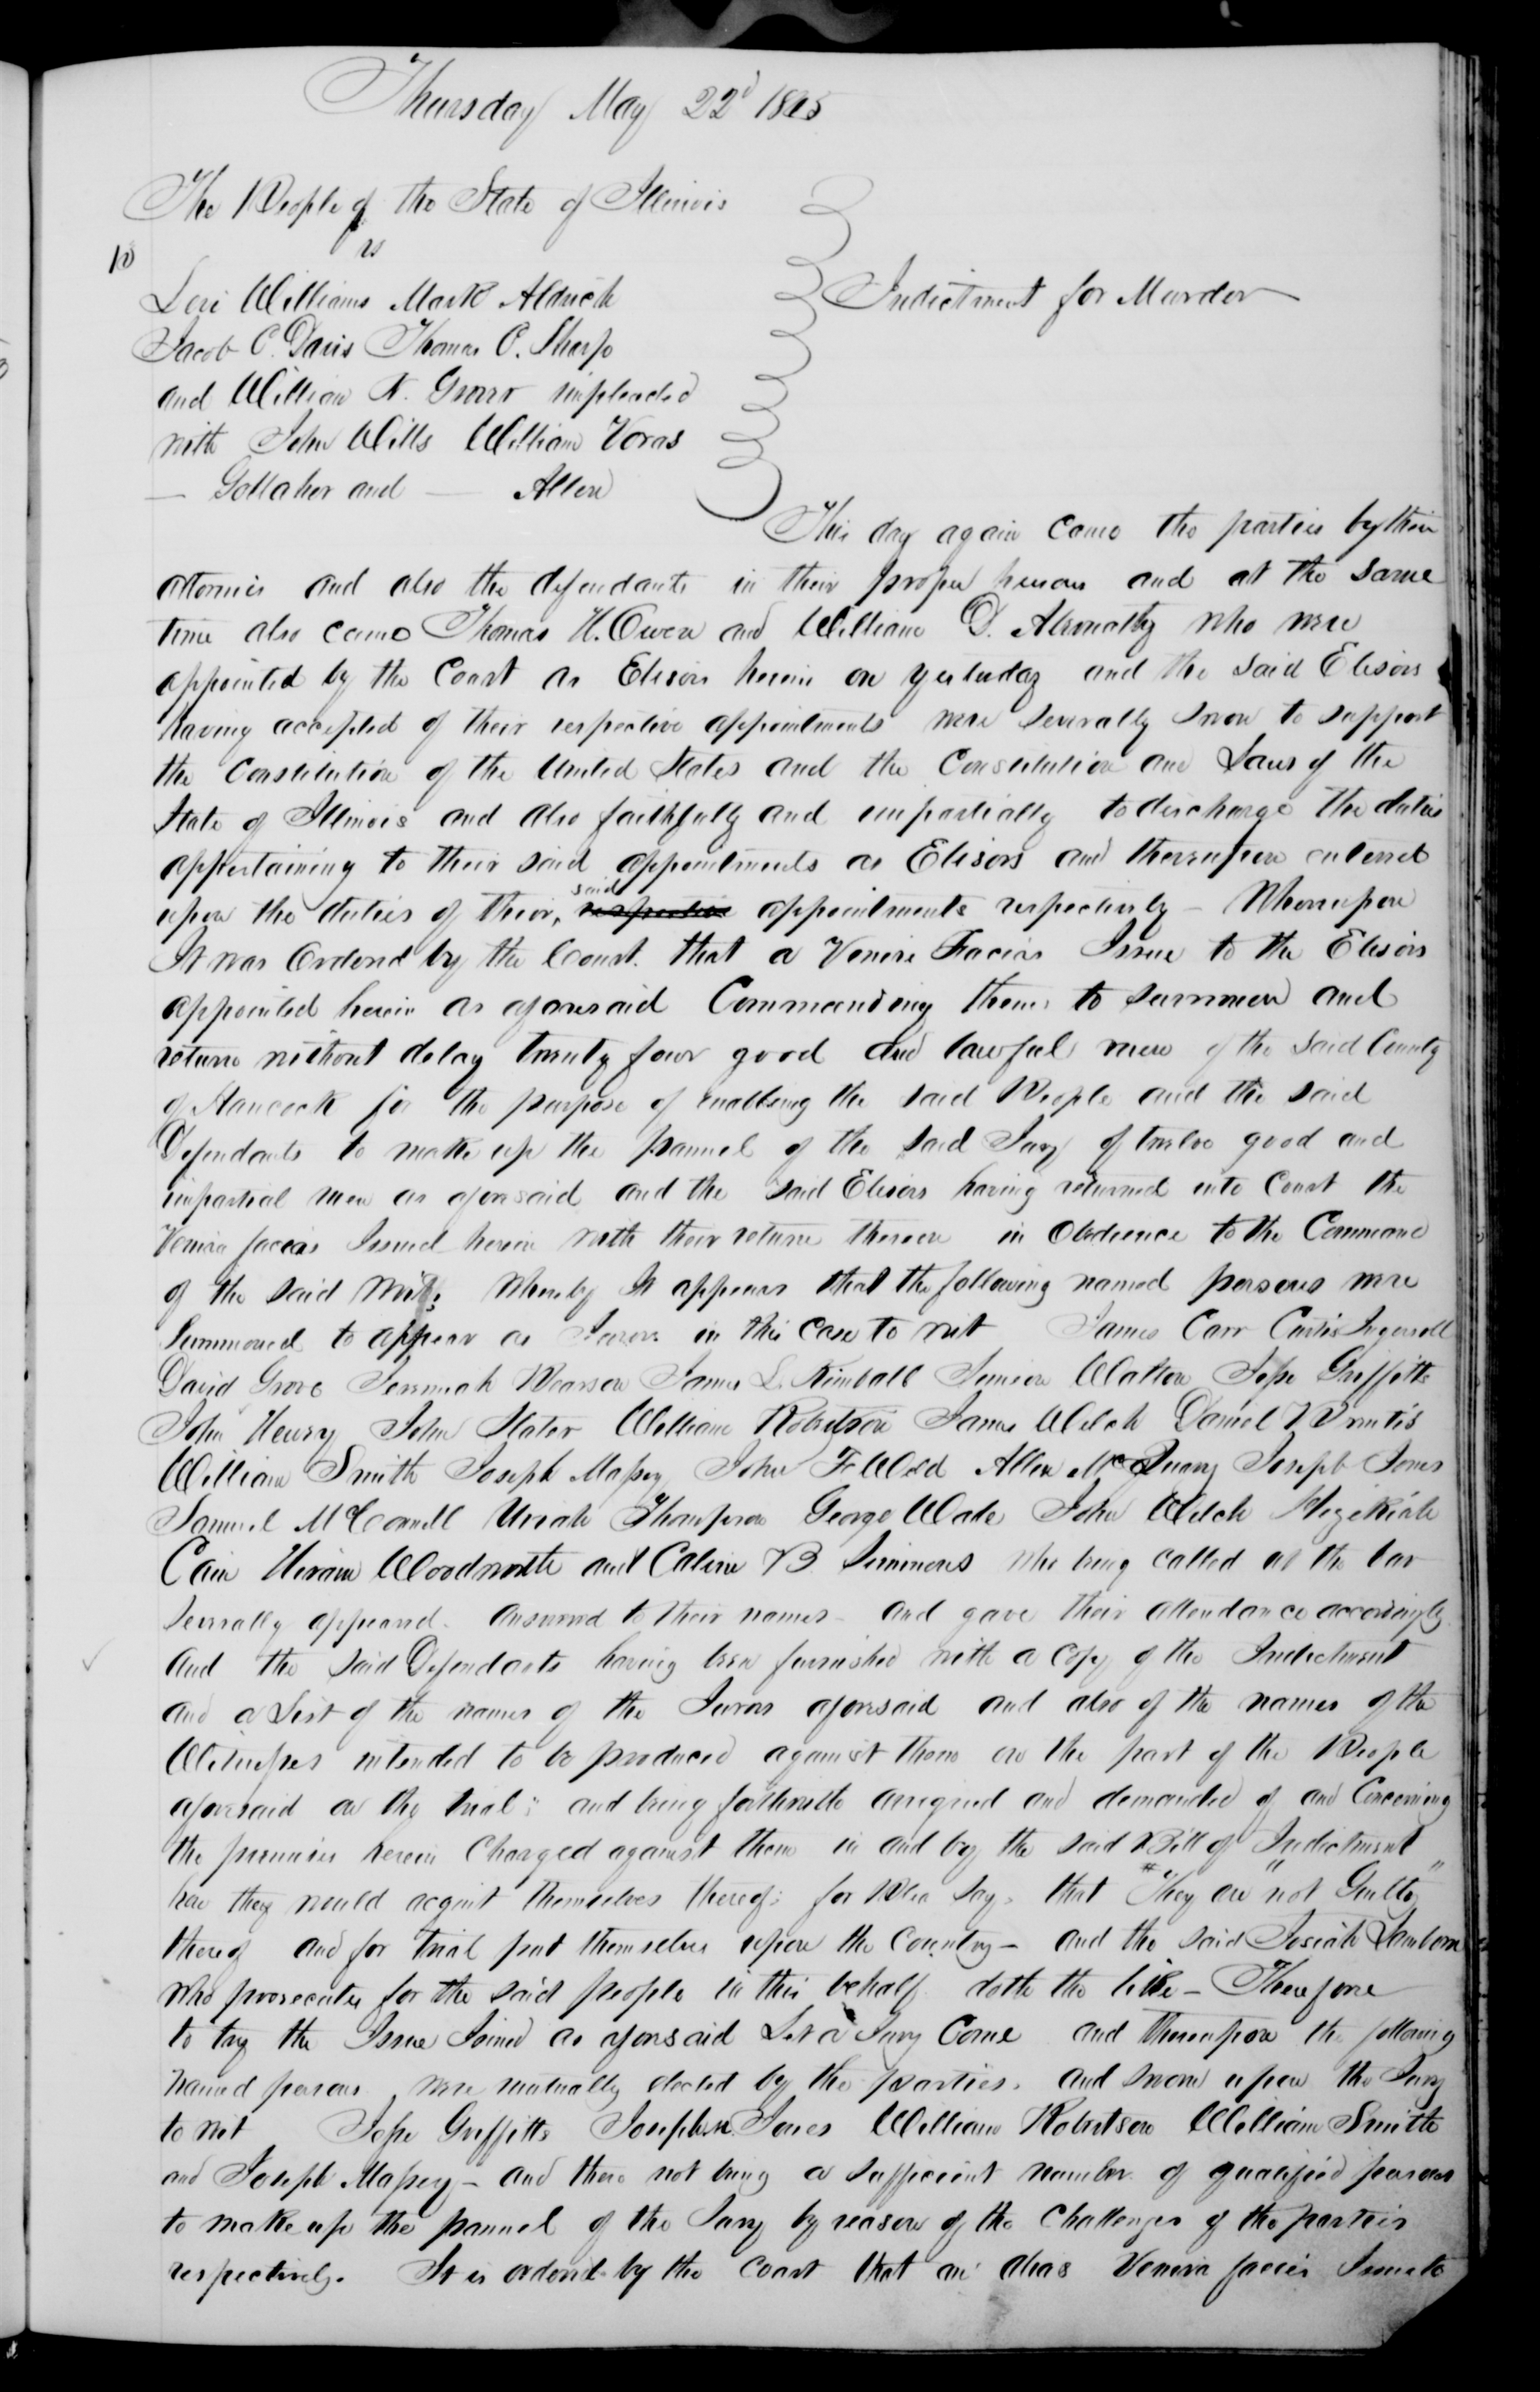 Thursday May 22d 1845
The People of the State of Illinois
vs
10
Levi Williams Mark Aldrich
Indictment for Murder
Jacob C. Davis Thomas C. Sharp
and William N. Grover impleaded
with John Wills William Voras
— Gollaher and — Allen
This day again came the parties by their
attornies and also the defendants in their proper persons and at the same
time also came Thomas H. Owen and William D. Abernathy who were
appointed by the Court as Elisors herein on yesterday and the said Elisors
having accepted of their respective appointments were severally sworn to support
the Constitution of the United States and the Constitution and Laws of the
State of Illinois and also faithfully and impartially to discharge the duties
appertaining to their said appointments as Elisors and thereupon entered
upon the duties of their, said respective appointments respectively - Whereupon
It was Ordered by the Court. that a Venire Facias Issue to the Elisors
appointed herein as aforesaid Commanding them to summon and
return without delay twenty four good and lawful men of the said County
of Hancock for the purpose of enabling the said People and the said
Defendants to make up the pannel of the said Jury of twelve good and
impartial men as aforesaid and the said Elisors having returned into Court the
Venire facias Issued herein with their return thereon in Obedience to the Command
of the said Writ; Whereby It appears that the following named persons were
Summoned to appear as Jurors in this case to wit James Carr Curtis Ingersoll
David Grove Jeremiah Pearson James L. Kimball Simeon Walton Jesse Griffitts
John Henry John Slater William Robertson James Welch Daniel Prentis
William Smith Joseph Massey John F Weld Allen McQuary Joseph Jones
Samuel McConnell Uriah Thompson George Wade John Welch Hezikiah
Cain Hiram Woodworth and Calvin B. Simmons who being called at the bar
severally appeared. answered to their names - and gave their attendance accordingly
And the said Defendants having been furnished with a copy of the Indictment
and a List of the names of the Jurors aforesaid and also of the names of the
Witnesses intended to be produced against them on the part of the People
aforesaid on the trial; and being forthwith arraigned and demanded of and Concerning
the premises herein Charged against them in and by the said Bill of Indictment
how they would acquit themselves thereof: for Plea say, that They are "not Guilty"
thereof and for trial put themselves upon the Country - and the said Josiah Lamborn
who prosecutes for the said people in this behalf doth the like - Therefore
to try the Issue Joined as aforesaid Let a Jury Come and thereupon the following
named persons were mutually elected by the parties. and sworn upon the Jury
to wit Jesse Griffitts Joseph Jones William Robertson William Smith
and Joseph Massey - and there not being a sufficient number of qualified persons
to make up the pannel of the Jury by reason of the Challenges of the parties
respectively. It is ordered by the Court that an alias Venire facias Issue to